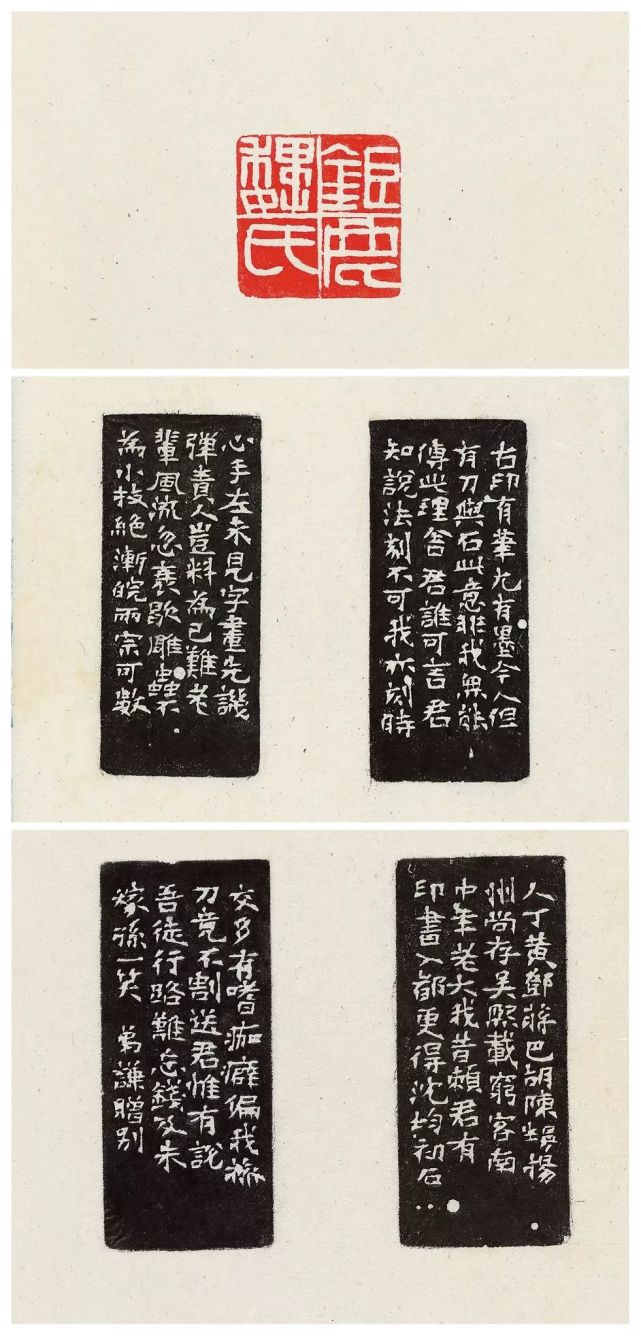 鉅鹿
魏氏
古印有筆尤有墨今人但
有刀與石此意非我無能
傳此理舍君誰可言君
知說法刻不可我亦刻時
心手左未見字畫先譏
彈貴人豈料為己難老
輩風流忽衰歇雕蟲不
為小技絕浙皖兩宗可數
人丁黃鄧蔣巴胡陳揚
州尚存吳熙載窮客南
中年老大我昔賴君有
印書入都更得沈均初石
交多有嗜痂癖偏我操
刀竟不割送君惟有說
吾徒行路難忘錢及朱
稼孫一笑 弟謙贈別